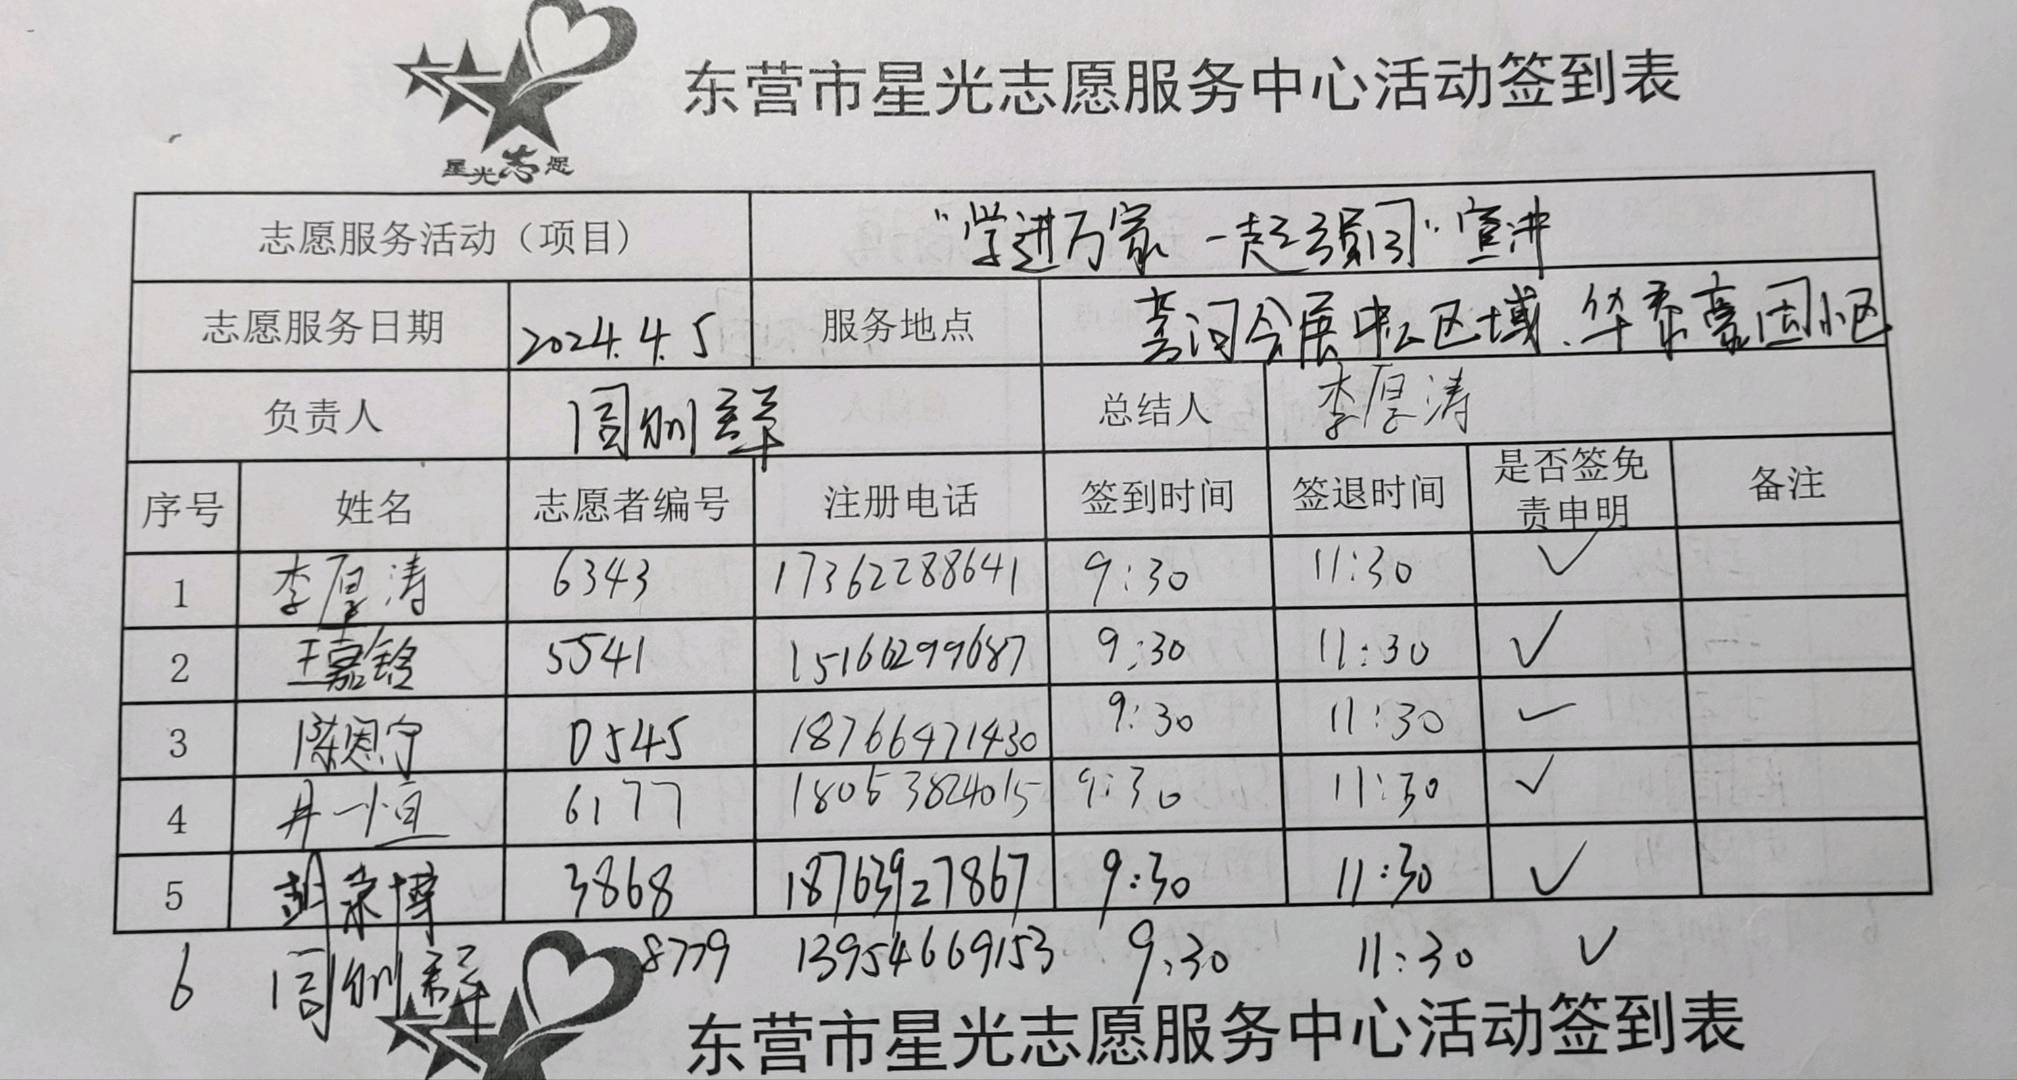 东营市星光志愿服务中心活动签到表
星光志愿
志愿服务活动（项目） “学进万家 一起预习”宣讲
志愿服务日期 2024.4.5 服务地点 黄河会展中心区域、华泰豪园小区
负责人 周 总结人 李厚涛
序号 姓名 志愿者编号 注册电话 签到时间 签退时间 是否签免责申明 备注
1 李厚涛 6343 17362288641 9:30 11:30 ✓
2 王嘉铃 5541 15166299687 9:30 11:30 ✓
3 陈恩宁 0545 18766471430 9:30 11:30 ✓
4 一恒 6177 18053824015 9:30 11:30 ✓
5 彭荣博 3868 18763927867 9:30 11:30 ✓
6 周 8779 13954669153 9:30 11:30 ✓
东营市星光志愿服务中心活动签到表